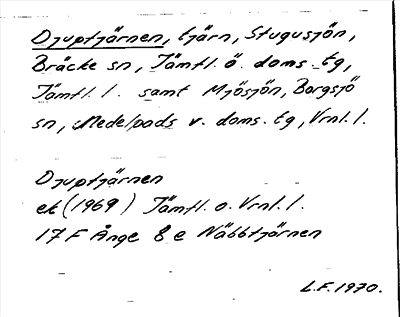 Djuptjärnen, tjärn, Stugusjön,
Bräcke sn, Jämtl. ö. doms. tg,
Jämtl. l. samt Mjösjön, Borgsjö
sn, Medelpads v. doms. tg, Vrnl. l.
Djuptjärnen
ek (1969) Jämtl. o. Vrnl. l.
17 F Ånge 8 e Näbbtjärnen
L.F. 1970.